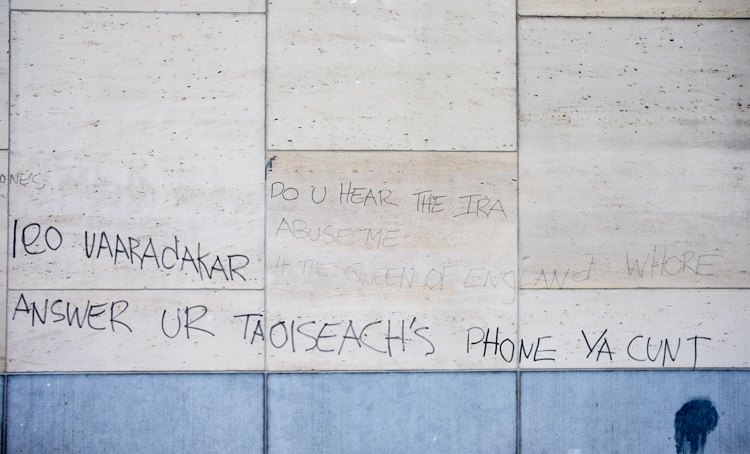 ONE'S
DO U HEAR THE IRA
ABUSE ME
4 THE QUEEN OF ENGLAND WHORE
leO VAARAdAKAR
ANSWER UR TAOISEACH'S PHONE YA CUNT